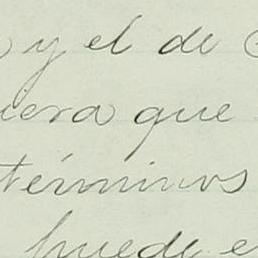 y el de
iera que
términos
puede e